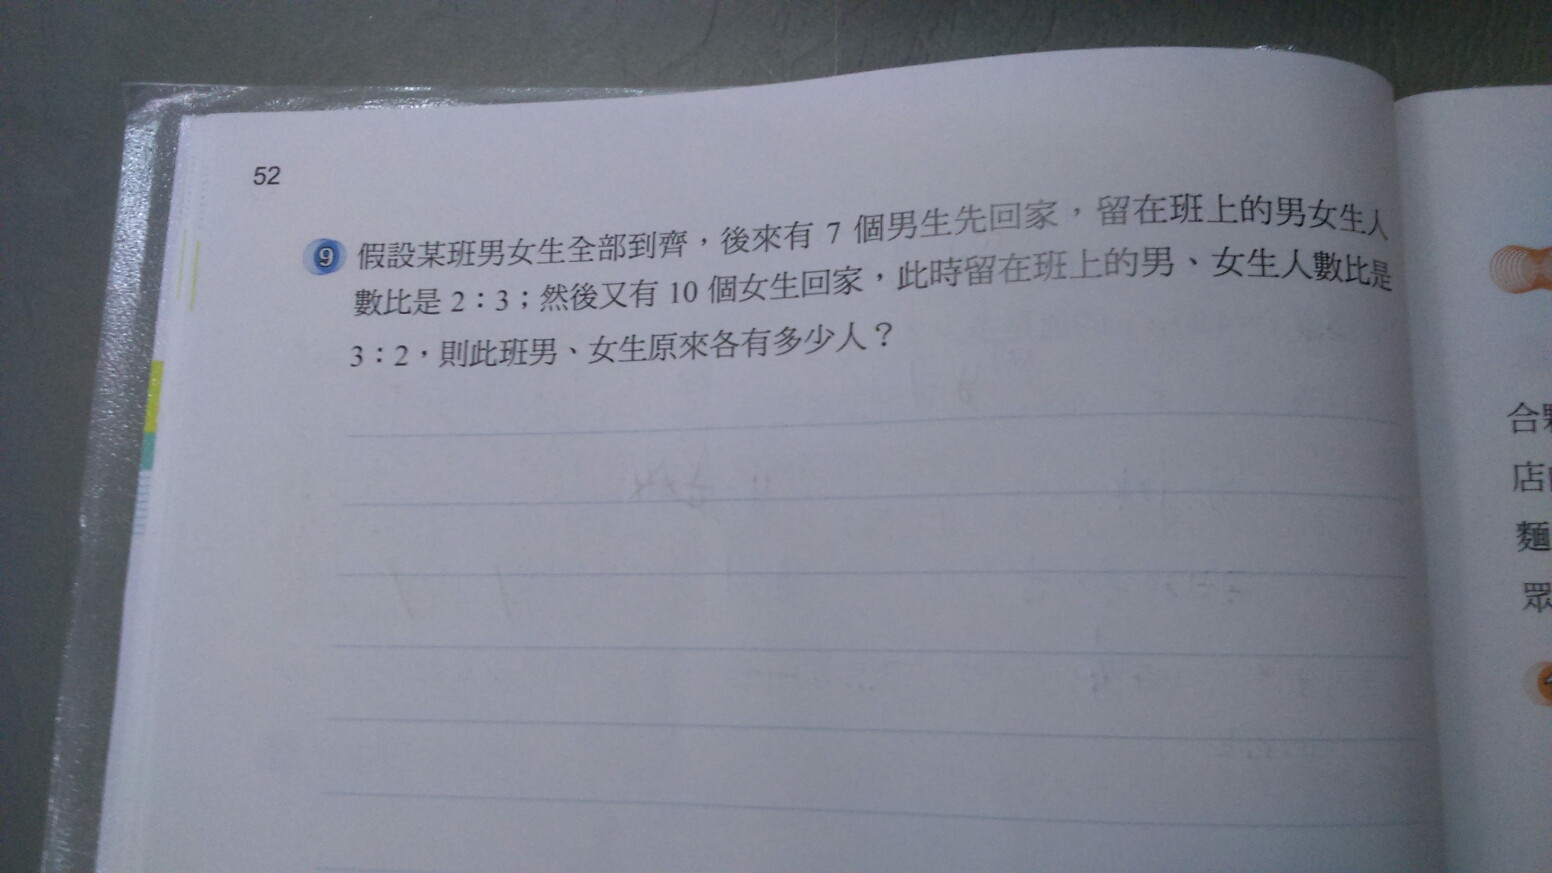 52
9 假設某班男女生全部到齊，後來有 7 個男生先回家，留在班上的男女生人
數比是 2：3；然後又有 10 個女生回家，此時留在班上的男、女生人數比是
3：2，則此班男、女生原來各有多少人？
合
店
麵
眾